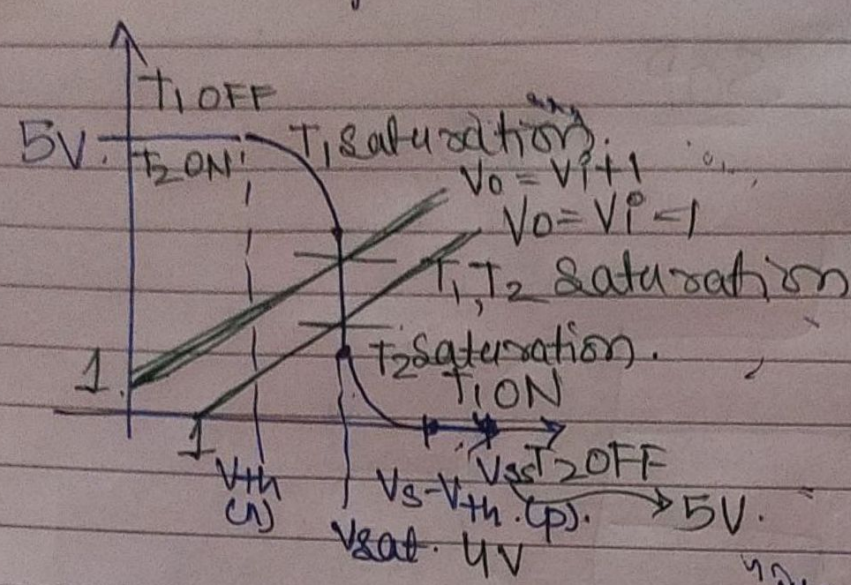 T1 OFF
5V.
T2 ON
T1 saturation.
Vo = Vi+1
Vo = Vi-1
T1, T2 saturation
T2 saturation.
1
T1 ON
1
Vth
(n)
Vs-Vth.(p).
Vss
T2 OFF
5V.
Vsat.
4V